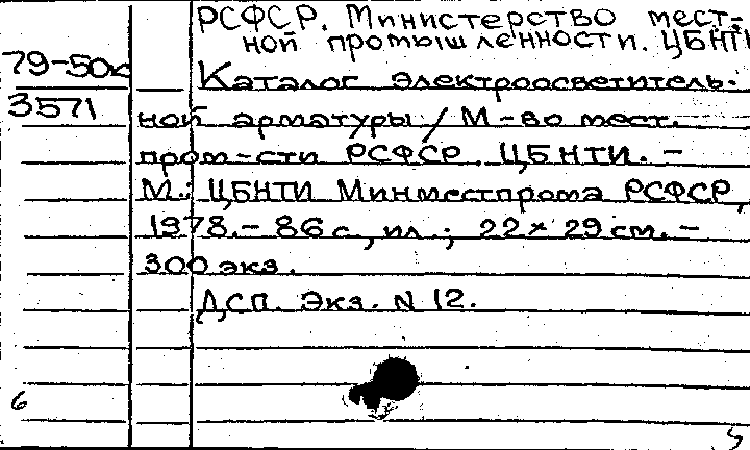 РСФСР. Министерство мест-
ной промышленности. ЦБНТИ
79-50к
3571
Каталог электроосветитель-
ной арматуры / М-во мест.
пром-сти РСФСР, ЦБНТИ. -
М.: ЦБНТИ Минместпрома РСФСР,
1978. - 86 с., ил.; 22 x 29 см. -
300 экз.
ДСП. Экз. N 12.
6